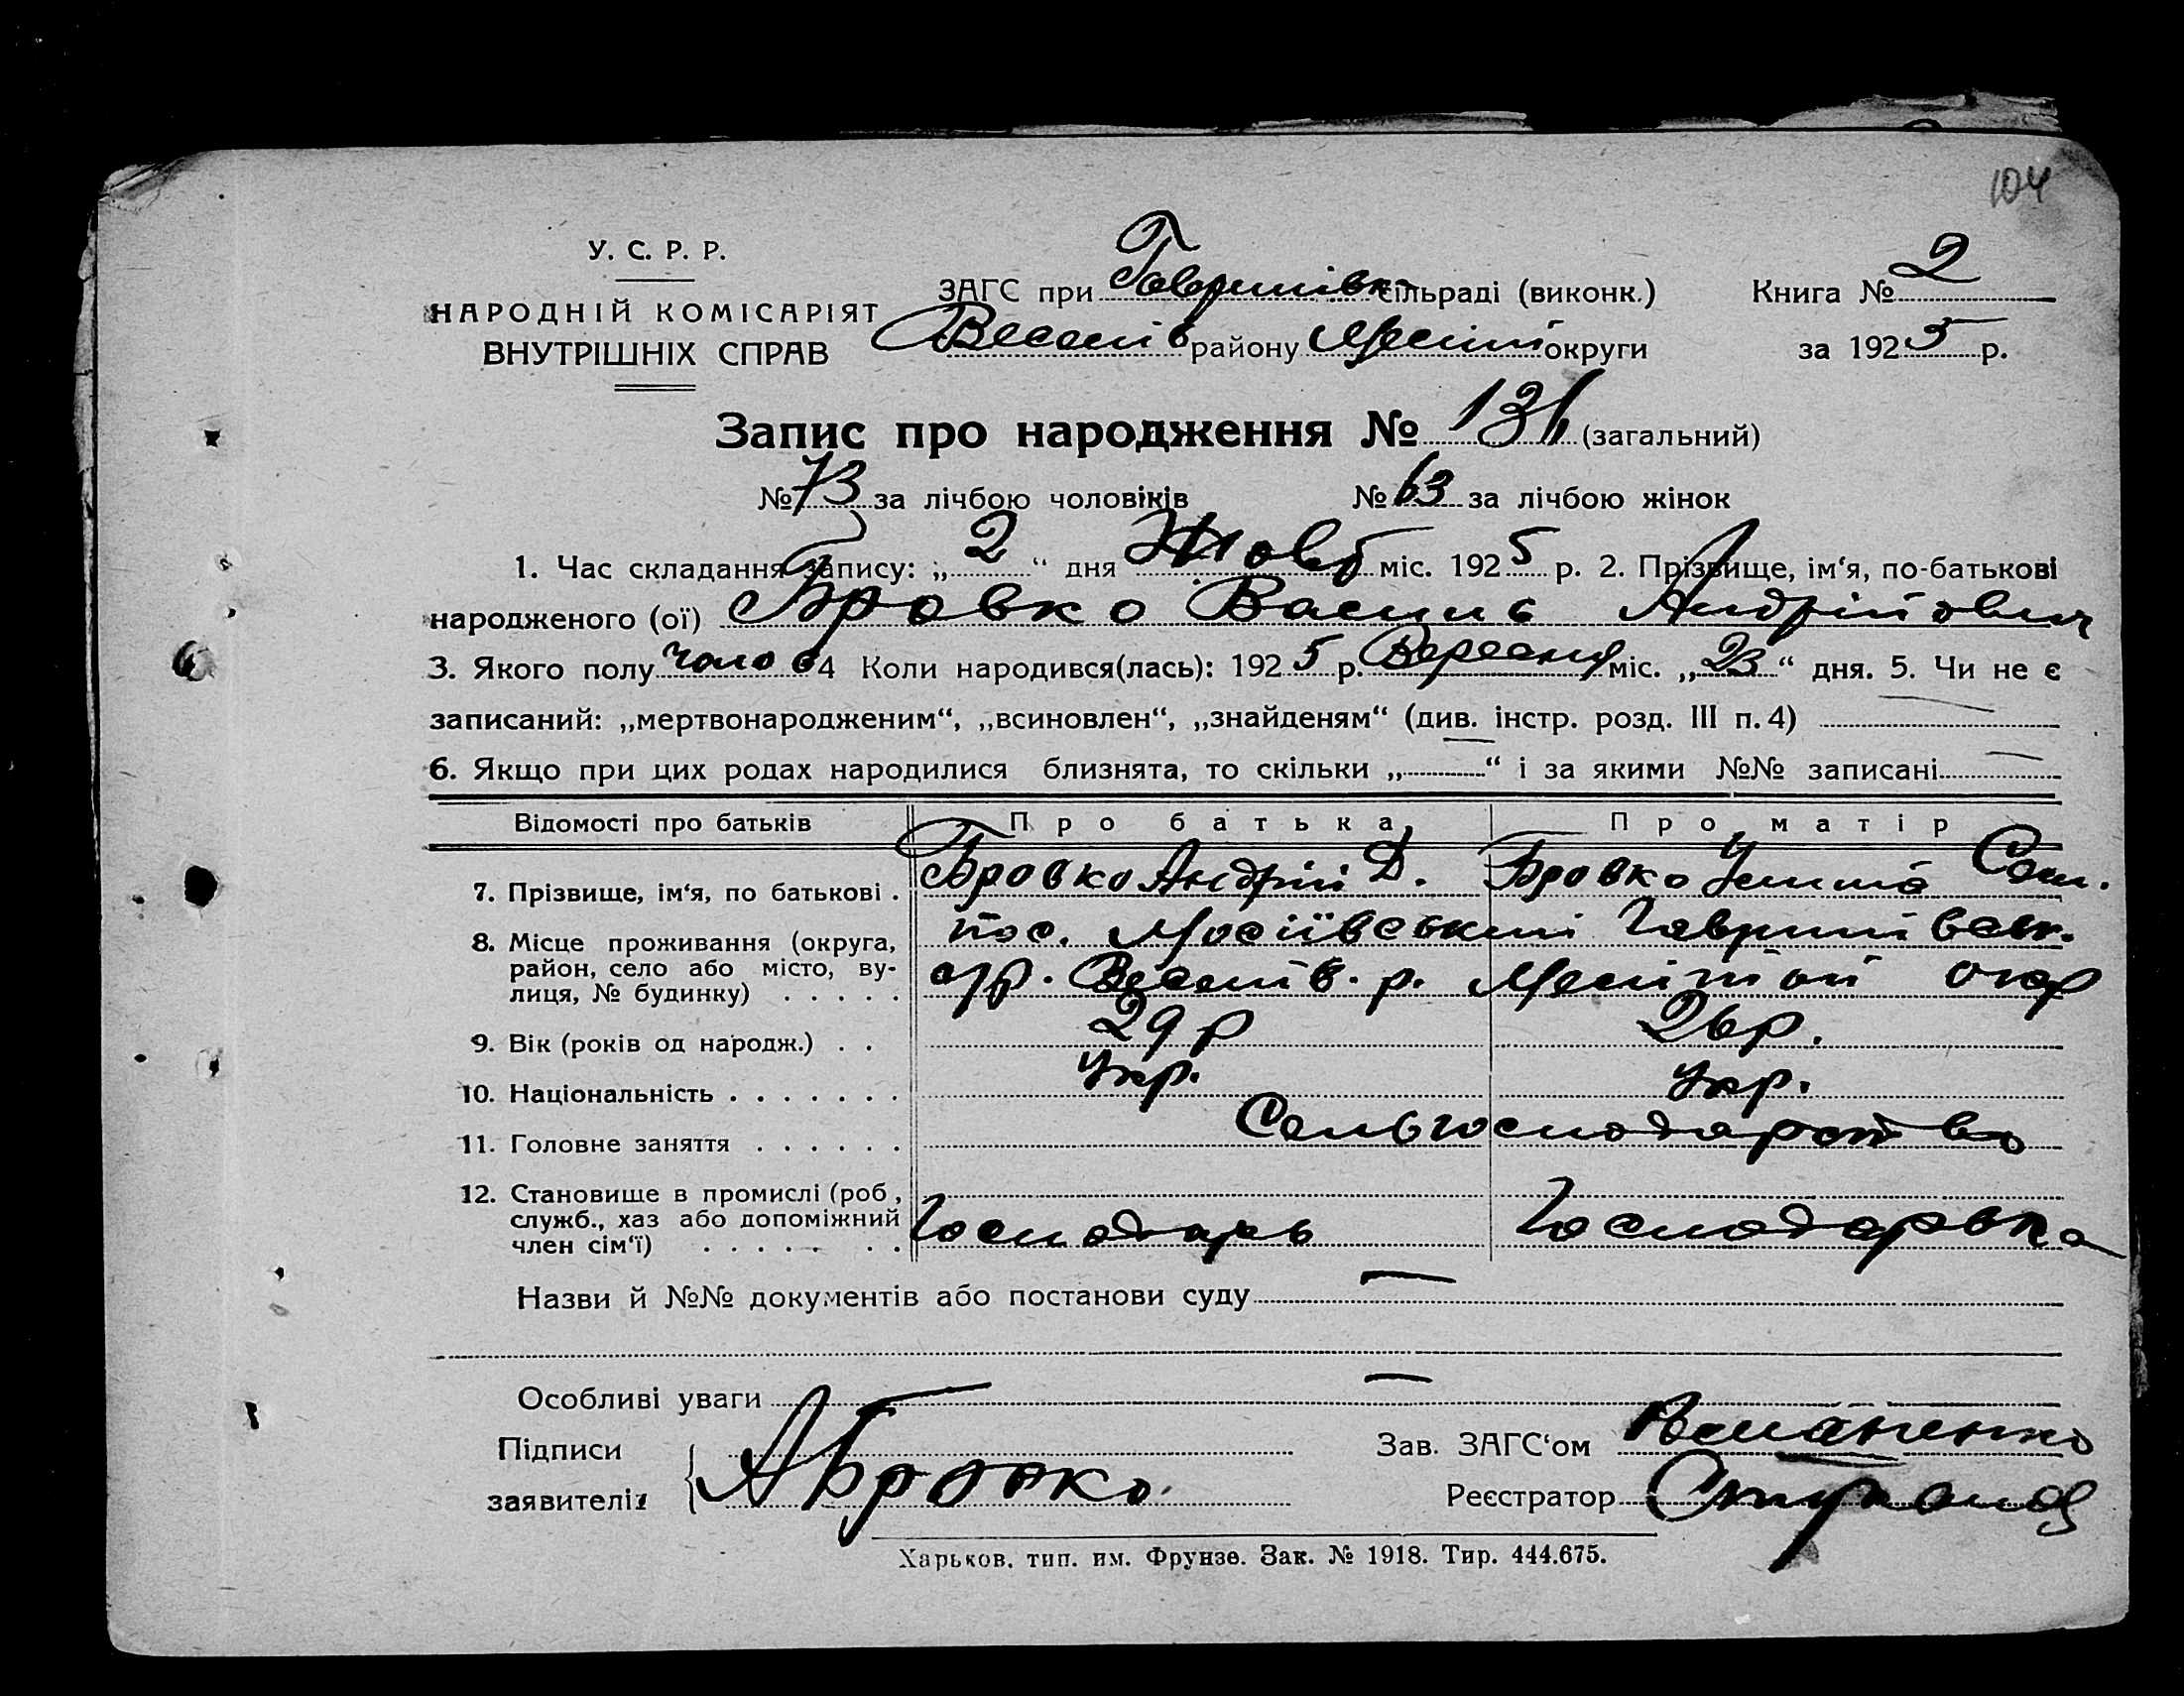 104
У. С. Р. Р.
НАРОДНІЙ КОМІСАРІЯТ
ВНУТРІШНІХ СПРАВ
ЗАГС при Гавришівк сільраді (виконк.)
Веселів району Меліт округи
Книга № 2
за 1925 р.
Запис про народження № 136 (загальний)
№ 73 за лічбою чоловіків № 63 за лічбою жінок
1. Час складання запису: „ 2 “ дня Жовт міс. 1925 р. 2. Прізвище, ім‘я, по-батькові
народженого (ої) Бровко Василь Андрійович
3. Якого полу чолов 4 Коли народився(лась): 1925 р. Вересня міс. „23“ дня. 5. Чи не є
записаний: „мертвонародженим“, „всиновлен“, „знайденям“ (див. інстр. розд. III п. 4) —
6. Якщо при цих родах народилися близнята, то скільки „—“ і за якими №№ записані —
Відомості про батьків Про батька Про матір
7. Прізвище, ім‘я, по батькові . Бровко Андрій Д. Бровко
8. Місце проживання (округа,
район, село або місто, ву-
лиця, № будинку) . . . . .
пос. Мосіївський
Веселів. р. Мелітой окр
9. Вік (років од народж.) . . 29 р 26 р.
10. Національність . . . . . . . Укр. Укр.
11. Головне заняття . . . . . . Сельгосподарство
12. Становище в промислі (роб,
служб., хаз або допоміжний
член сім‘ї) . . . . . . .
Господарь Господарька
Назви й №№ документів або постанови суду —
Особливі уваги —
Підписи
заявителів
АБровко
Зав. ЗАГС‘ом
Реєстратор
Харьков. тип. им. Фрунзе. Зак. № 1918. Тир. 444.675.